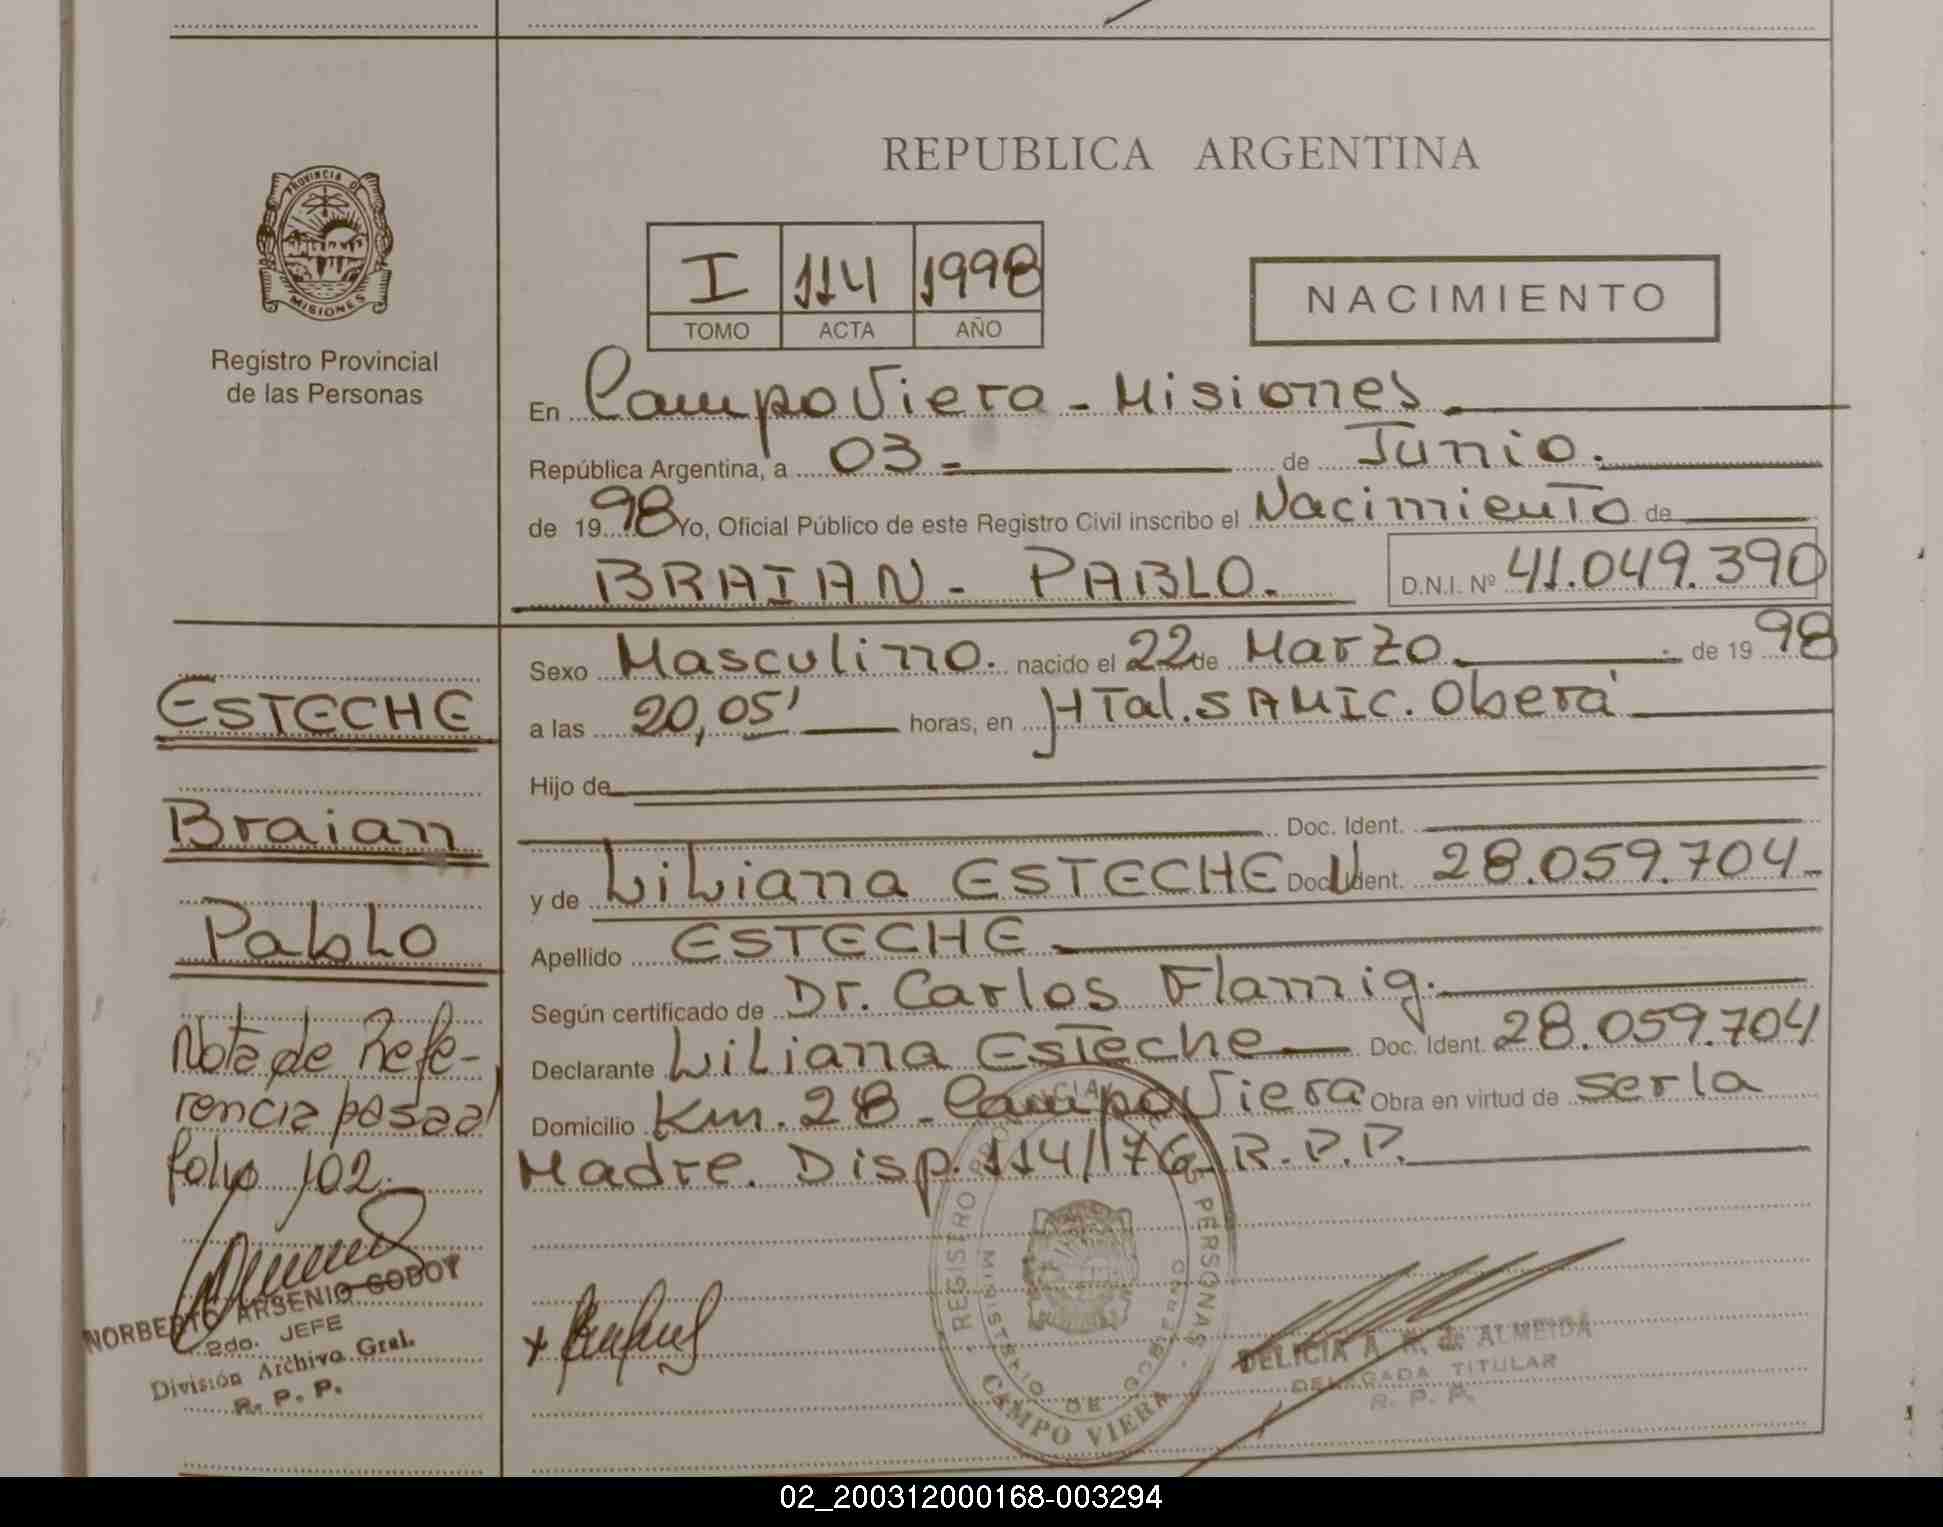 REPUBLICA ARGENTINA
PROVINCIA DE
MISIONES
Registro Provincial
de las Personas
I 114 1998
TOMO ACTA AÑO
NACIMIENTO
En Campo Viera - Misiones
República Argentina, a 03 = de Junio.
de 1998 Yo, Oficial Público de este Registro Civil inscribo el Nacimiento de
BRAIAN - PABLO. D.N.I. Nº 41.049.390
Sexo Masculino. nacido el 22 de Marzo de 1998
a las 20,05' horas, en HTal. SAMIC. Oberá
Hijo de
Doc. Ident.
y de LiLiana ESTECHE Doc. Ident. 28.059.704-
Apellido ESTECHE
Según certificado de Dr. Carlos Flamig.
Declarante LiLiana Esteche Doc. Ident. 28.059.704
Domicilio Km. 28 - Campo Viera Obra en virtud de ser la
Madre. Disp. 114/76 R.P.P.
ESTECHE
Braian
Pablo
Nota de Refe-
rencia pasa al
folio 102.
NORBERTO ARSENIO GODOY
2do. JEFE
División Archivo Gral.
R. P. P.
REGISTRO PROVINCIAL DE LAS PERSONAS
MINISTERIO DE GOBIERNO
CAMPO VIERA
DELICIA A. de ALMEIDA
DELEGADA TITULAR
R. P. P.
02_200312000168-003294